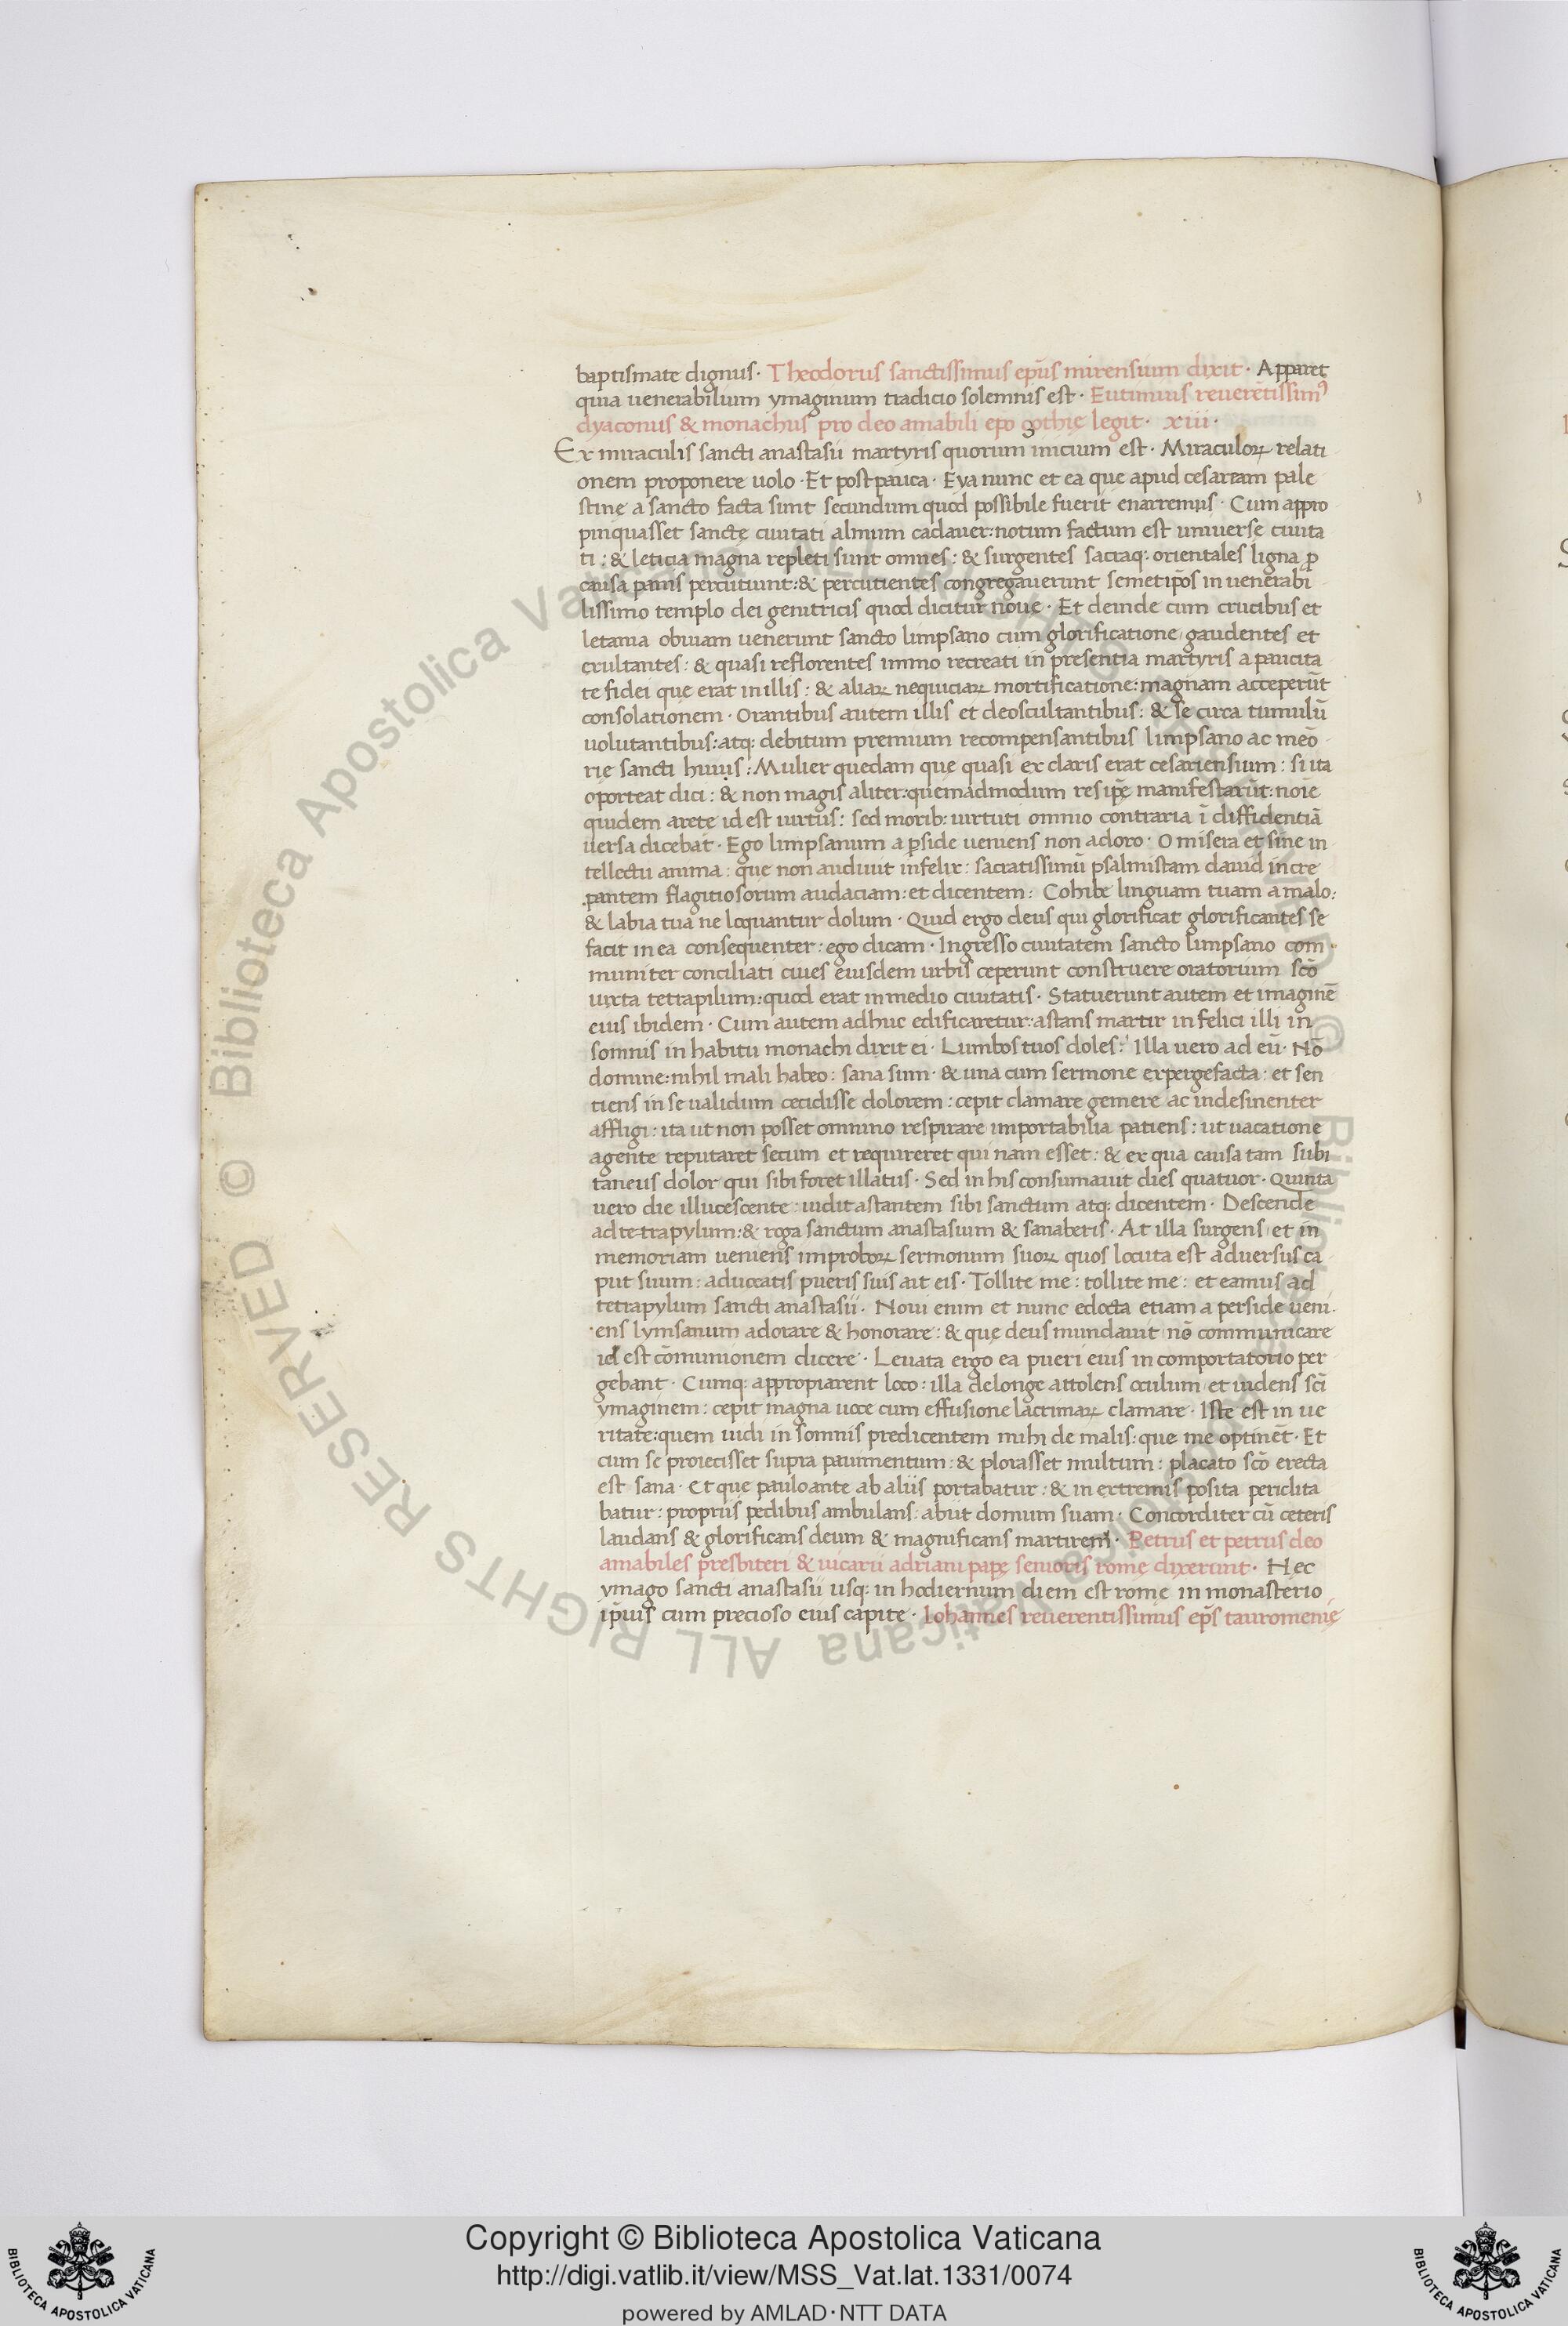 baptismate dignus · Theodorus sanctissimus ep̄us mirensium dixit · Apparet
quia uenerabilium ymaginum tradicio solemnis est · Eutimius reuerētissimꝰ
dyaconus & monachus pro deo amabili ep̄o gothię legit · xiii ·
Ex miraculis sancti anastasii martyris quorum inicium est · Miraculoꝝ relati
onem proponere uolo · Et post pauca · Eya nunc et ea que apud cesaream pale
stine a sancto facta sunt secundum quod possibile fuerit enarremus · Cum appro
pinquasset sanctę ciuitati almum cadauer: notum factum est uniuerse ciuita
ti : & leticia magna repleti sunt omnes : & surgentes sacraq: orientales ligna ꝓ
causa panis percutiunt: & percutientes congregauerunt semetip̄os in uenerabi
lissimo templo dei genitricis quod dicitur nouę · Et deinde cum crucibus et
letania obuiam uenerunt sancto limpsano cum glorificatione gaudentes et
exultantes : & quasi reflorentes immo recreati in presentia martyris a paucita
te fidei que erat in illis : & aliaꝝ nequiciaꝝ mortificatione: magnam acceperūt
consolationem · Orantibus autem illis et deoscultantibus : & se circa tumulū
uolutantibus: atq: debitum premium recompensantibus limpsano ac meō
rię sancti huius : Mulier quedam que quasi ex claris erat cesariensium : si ita
oporteat dici : & non magis aliter: quemadmodum res ip̄e manifestarūt: noīe
quidem arete id est uirtus : sed morib: uirtuti omnio contraria ī diffidentiā
uersa dicebat · Ego limpsanum a ꝑside ueniens non adoro · O misera et sine in
tellectu anima : que non audiuit infelix : sacratissimū psalmistam dauid incre
pantem flagitiosorum audaciam: et dicentem : Cohibe linguam tuam a malo:
& labia tua ne loquantur dolum · Quid ergo deus qui glorificat glorificantes se
facit in ea consequenter : ego dicam · Ingresso ciuitatem sancto limpsano com
muniter conciliati ciues eiusdem urbis ceperunt construere oratorium sc̄o
iuxta tetrapilum: quod erat in medio ciuitatis · Statuerunt autem et imaginē
eius ibidem · Cum autem adhuc edificaretur: astans martir infelici illi in
somnis in habitu monachi dixit ei · Lumbos tuos doles : Illa uero ad eū · Nō
domine: nihil mali habeo : sana sum · & una cum sermone expergefacta : et sen
tiens in se ualidum cecidisse dolorem : cepit clamare gemere ac indesinenter
affligi : ita ut non posset omnino respirare importabilia patiens : ut uacatione
agente reputaret secum et requireret qui nam esset : & ex qua causa tam subi
taneus dolor qui sibi foret illatus · Sed in his consumauit dies quatuor · Quinta
uero die illucescente : uidit astantem sibi sanctum atq: dicentem · Descende
ad te-trapylum: & roga sanctum anastasium & sanaberis · At illa surgens et in
memoriam ueniens improboꝝ sermonum suoꝝ quos locuta est aduersus ca
put suum : aduocatis pueris suis ait eis · Tollite me : tollite me : et eamus ad
tetrapylum sancti anastasii · Noui enim et nunc edocta etiam a perside ueni
ens lymsanum adorare & honorare : & que deus mundauit nō communicare
id est cōmunionem dicere · Leuata ergo ea pueri eius in comportatorio per
gebant · Cumq: appropiarent loco : illa delonge attolens oculum et uidens sc̄i
ymaginem : cepit magna uoce cum effusione lacrimaꝝ clamare · Iste est in ue
ritate: quem uidi in somnis predicentem mihi de malis: que me optinēt · Et
cum se proiecisset supra pauimentum : & plorasset multum : placato sc̄o erecta
est sana · Et que pauloante ab aliis portabatur : & in extremis posita periclita
batur : propriis pedibus ambulans : abiit domum suam · Concorditer cū ceteris
laudans & glorificans deum & magnificans martirem · Petrus et petrus deo
amabiles presbiteri & uicarii adriani papę senioris romę dixerunt · Hec
ymago sancti anastasii usq: in hodiernum diem est rome in monasterio
ip̄ius cum precioso eius capite · Iohannes reuerentissimus ep̄s tauromenię
© Biblioteca Apostolica Vaticana ALL RIGHTS RESERVED © Biblioteca Apostolica Vaticana ALL RIGHTS RESERVED
Copyright © Biblioteca Apostolica Vaticana
http://digi.vatlib.it/view/MSS_Vat.lat.1331/0074
powered by AMLAD·NTT DATA
BIBLIOTECA APOSTOLICA VATICANA
BIBLIOTECA APOSTOLICA VATICANA